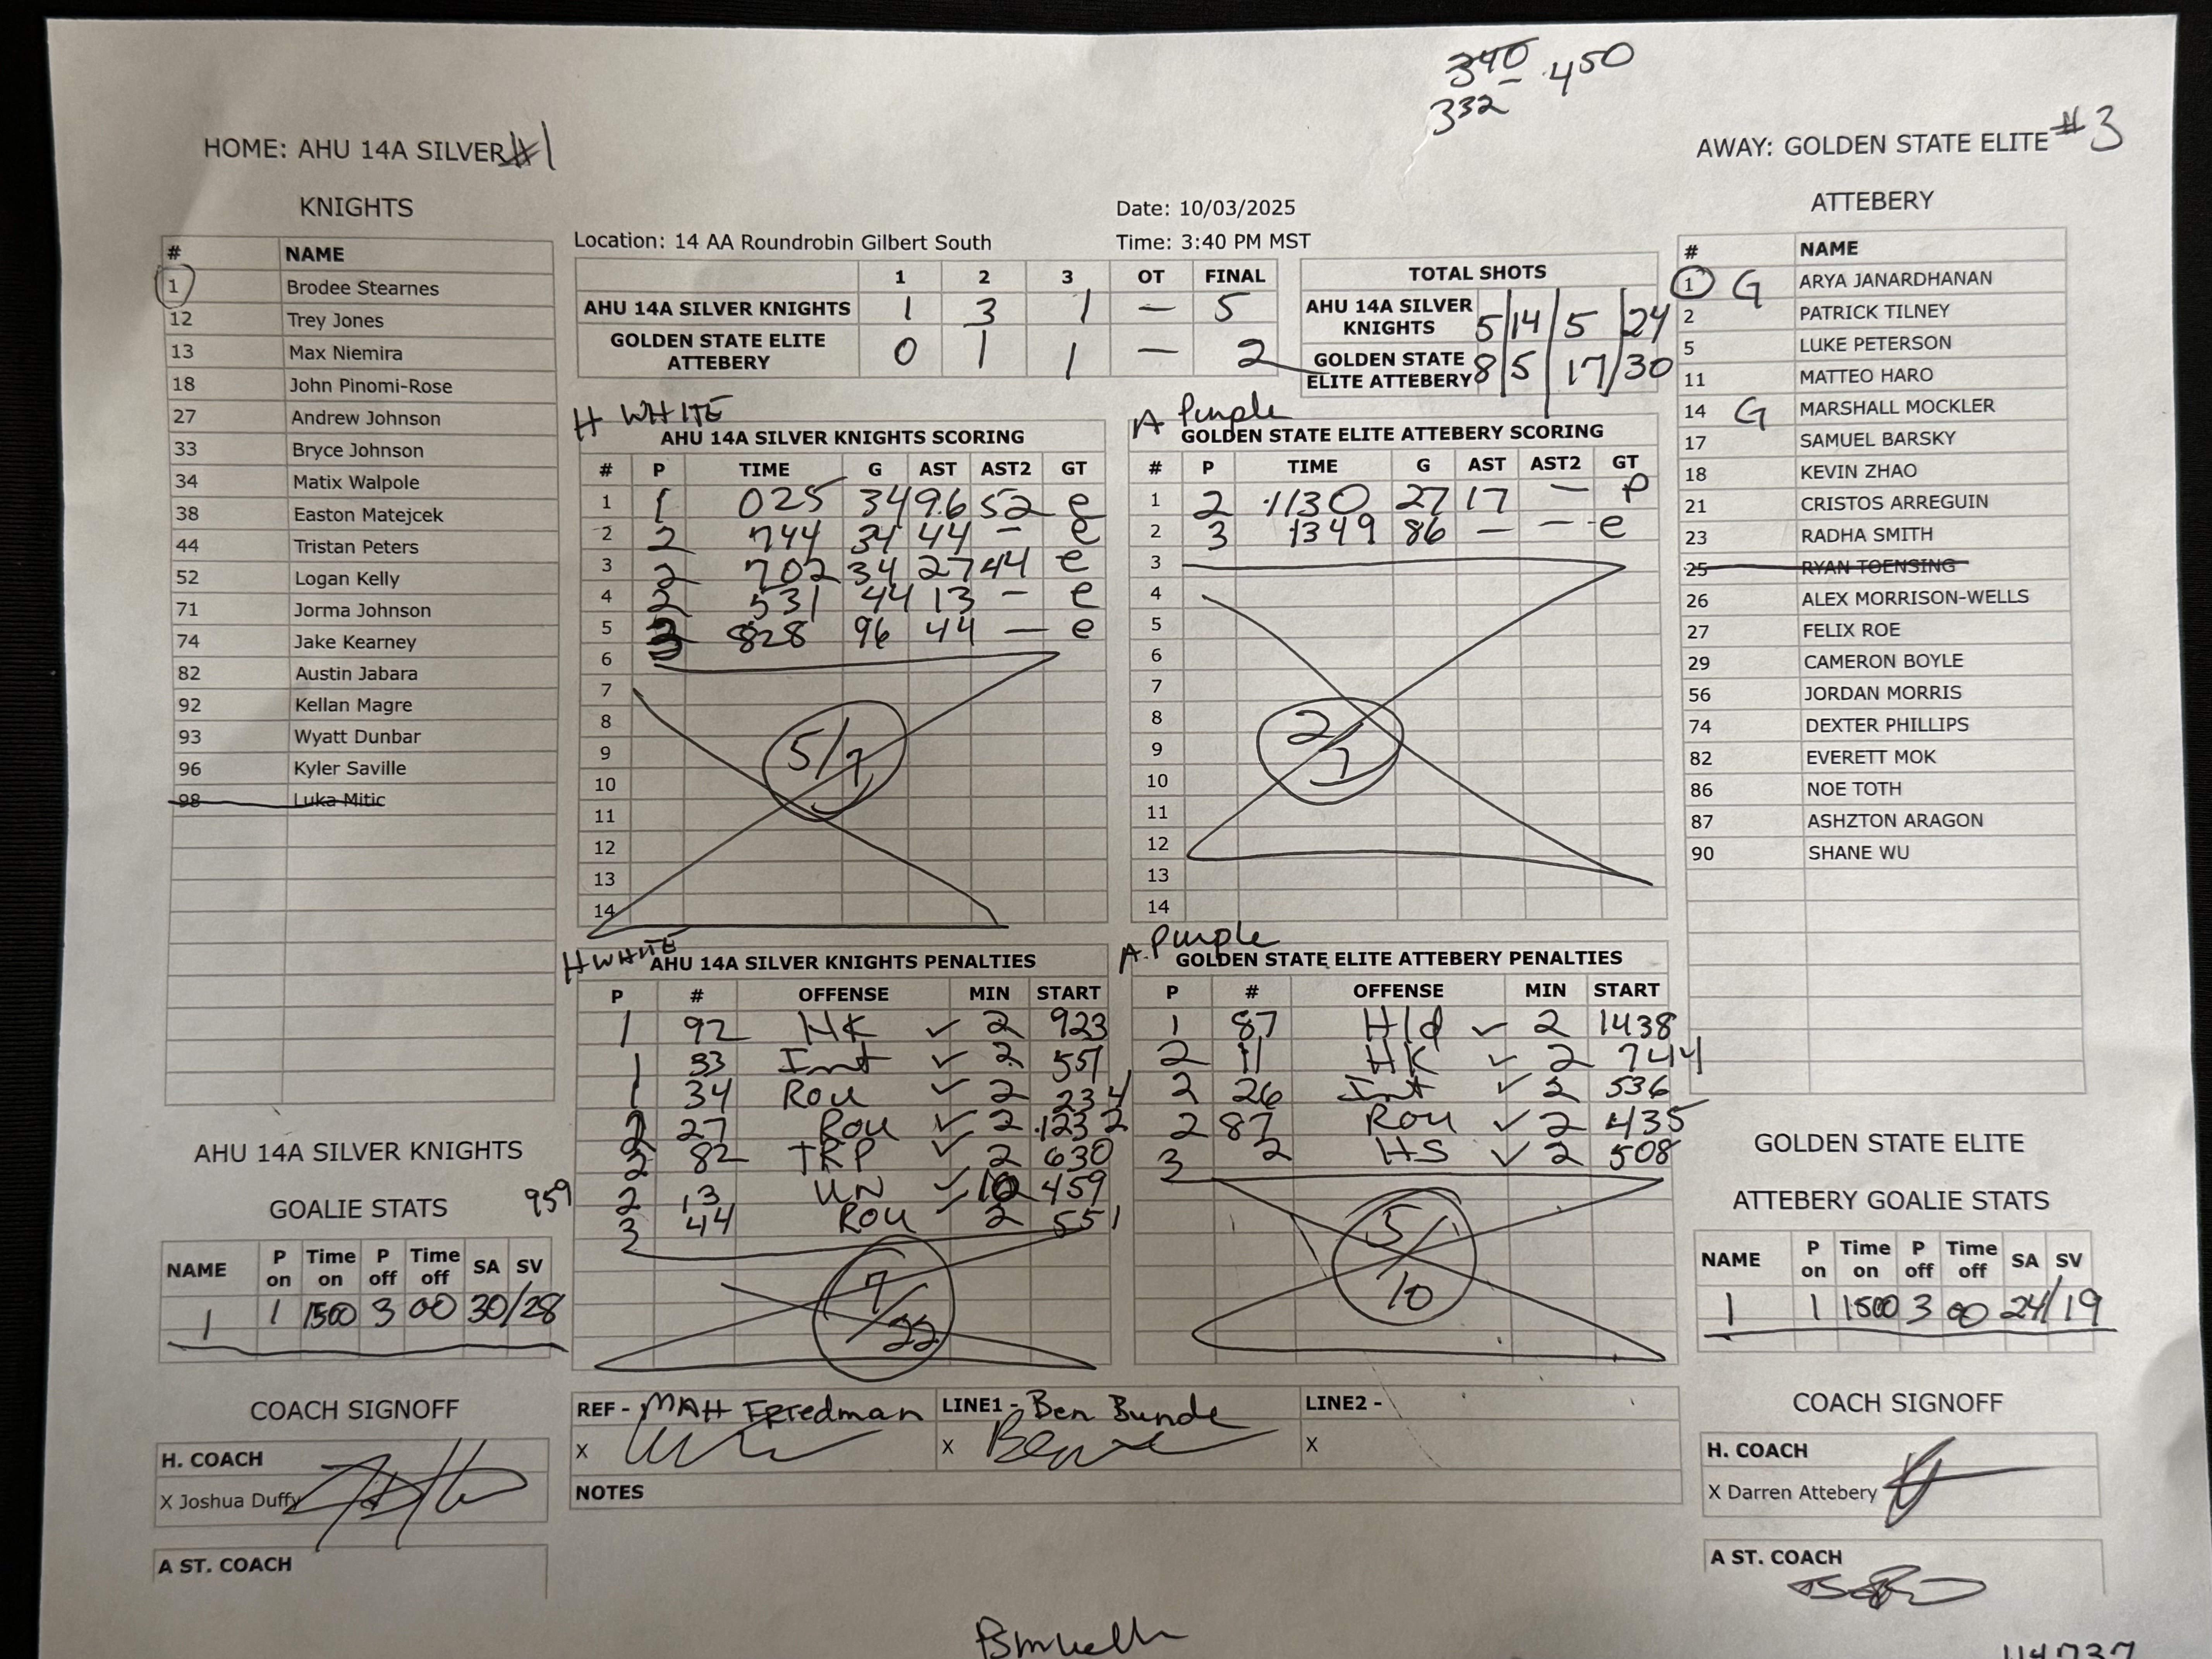 340 450
332
HOME: AHU 14A SILVER #1
KNIGHTS
# NAME
1 Brodee Stearnes
12 Trey Jones
13 Max Niemira
18 John Pinomi-Rose
27 Andrew Johnson
33 Bryce Johnson
34 Matix Walpole
38 Easton Matejcek
44 Tristan Peters
52 Logan Kelly
71 Jorma Johnson
74 Jake Kearney
82 Austin Jabara
92 Kellan Magre
93 Wyatt Dunbar
96 Kyler Saville
98 Luka Mitic
Location: 14 AA Roundrobin Gilbert South
Date: 10/03/2025
Time: 3:40 PM MST
1 2 3 OT FINAL
AHU 14A SILVER KNIGHTS 1 3 1 — 5
GOLDEN STATE ELITE ATTEBERY 0 1 1 — 2
TOTAL SHOTS
AHU 14A SILVER KNIGHTS 5/14/5/24
GOLDEN STATE ELITE ATTEBERY 8/5/17/30
AWAY: GOLDEN STATE ELITE #3
ATTEBERY
# NAME
1 G ARYA JANARDHANAN
2 PATRICK TILNEY
5 LUKE PETERSON
11 MATTEO HARO
14 G MARSHALL MOCKLER
17 SAMUEL BARSKY
18 KEVIN ZHAO
21 CRISTOS ARREGUIN
23 RADHA SMITH
25 RYAN TOENSING
26 ALEX MORRISON-WELLS
27 FELIX ROE
29 CAMERON BOYLE
56 JORDAN MORRIS
74 DEXTER PHILLIPS
82 EVERETT MOK
86 NOE TOTH
87 ASHZTON ARAGON
90 SHANE WU
H WHITE
AHU 14A SILVER KNIGHTS SCORING
# P TIME G AST AST2 GT
1 1 025 34 96 52 e
2 2 744 34 44 — e
3 2 702 34 27 44 e
4 2 531 44 13 — e
5 3 828 96 44 — e
6
7
8
9
10
11
12
13
14
5/7
A Purple
GOLDEN STATE ELITE ATTEBERY SCORING
# P TIME G AST AST2 GT
1 2 1130 27 17 — P
2 3 1349 86 — — e
3
4
5
6
7
8
9
10
11
12
13
14
2/1
H WHITE
AHU 14A SILVER KNIGHTS PENALTIES
P # OFFENSE MIN START
1 92 HK ✓ 2 923
1 33 Int ✓ 2 551
1 34 Rou ✓ 2 234
2 27 Rou ✓ 2 1232
2 82 TRP ✓ 2 630
2 13 UN ✓ 10 459
3 44 Rou 2 551
959
7/22
A Purple
GOLDEN STATE ELITE ATTEBERY PENALTIES
P # OFFENSE MIN START
1 87 Hld ✓ 2 1438
2 11 HK ✓ 2 744
2 26 Int ✓ 2 536
2 87 Rou ✓ 2 435
3 2 HS ✓ 2 508
5/10
AHU 14A SILVER KNIGHTS
GOALIE STATS
NAME P on Time on P off Time off SA SV
1 1 1500 3 00 30/28
GOLDEN STATE ELITE
ATTEBERY GOALIE STATS
NAME P on Time on P off Time off SA SV
1 1 1500 3 00 24/19
COACH SIGNOFF
H. COACH
X Joshua Duffy
A ST. COACH
REF - MAtt FRIedman
X
LINE1 - Ben Bunde
X Ben
LINE2 -
X
NOTES
COACH SIGNOFF
H. COACH
X Darren Attebery
A ST. COACH